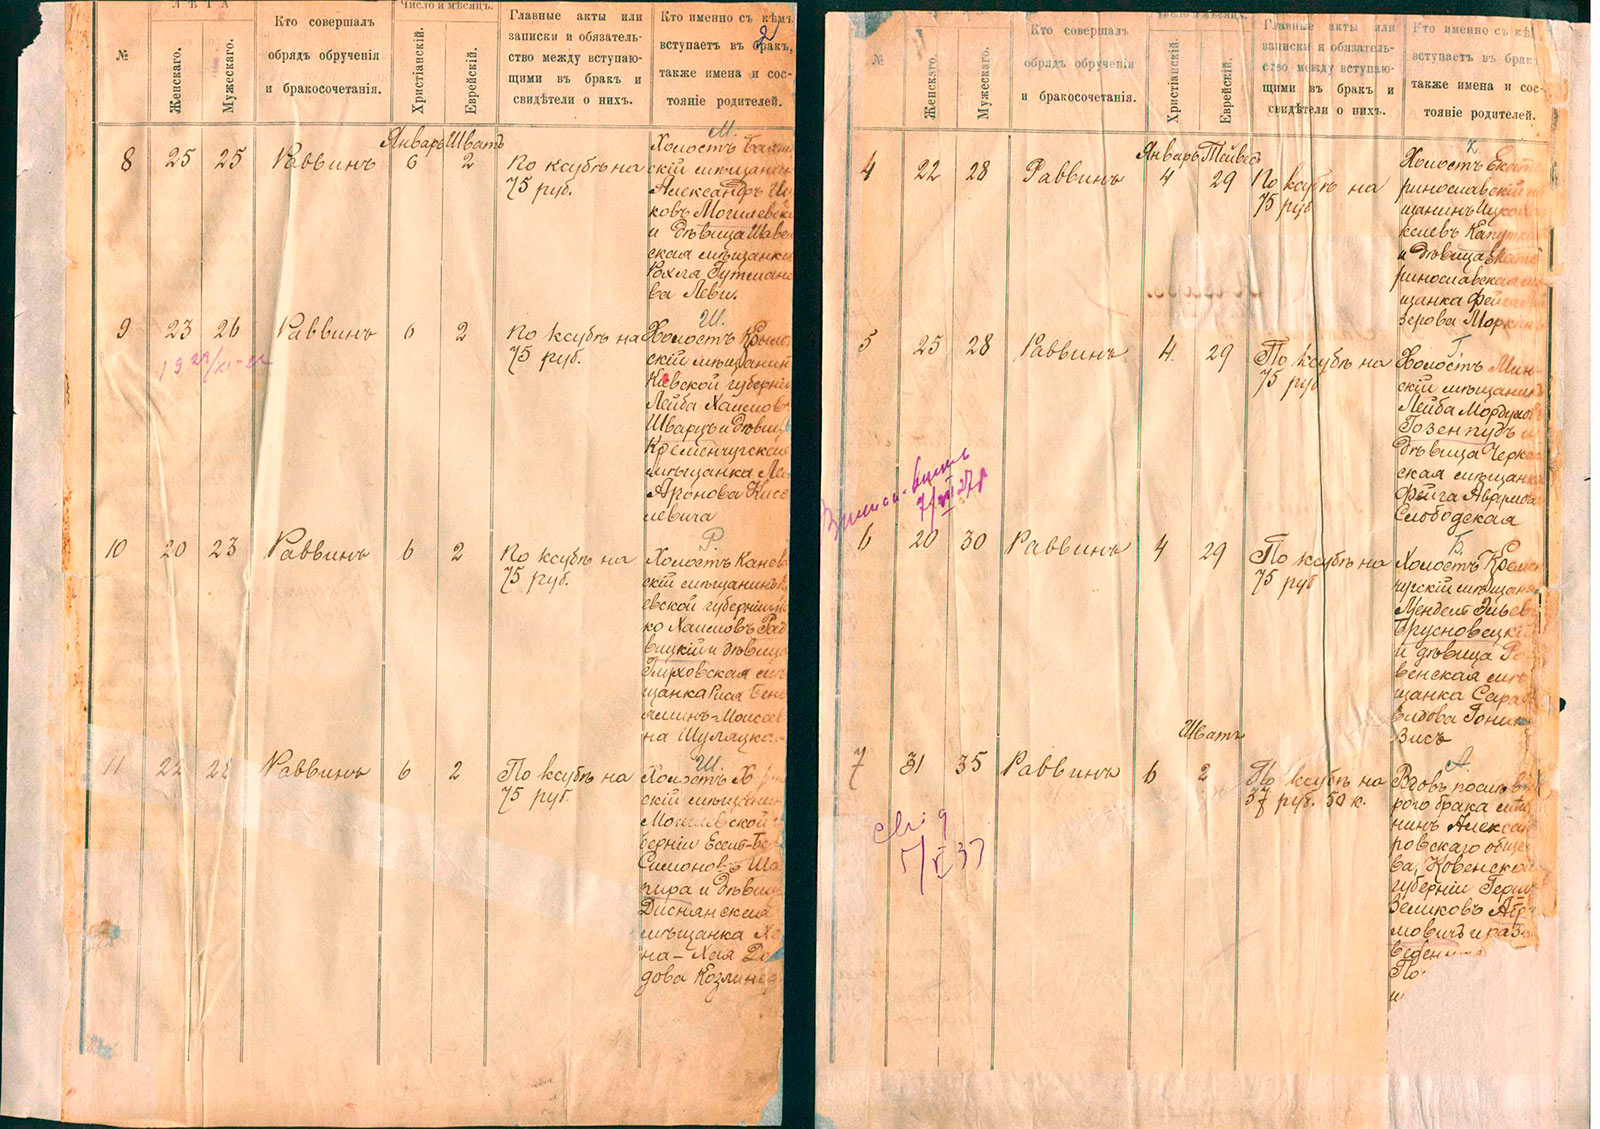 ЛѢТА
№
Женскаго.
Мужескаго.
Кто совершалъ
обрядъ обрученія
и бракосочетанія.
Число и мѣсяцъ.
Христіанскій.
Еврейскій.
Главные акты или
записки и обязатель-
ство между вступаю-
щими въ бракъ и
свидѣтели о нихъ.
Кто именно съ кѣмъ
вступаетъ въ бракъ,
также имена и сос-
тояніе родителей.
2
Январь Шватъ
8 25 25 Раввинъ 6 2
По ксубѣ на
75 руб.
М.
Холостъ
скій мѣщанинъ
Александръ
ковъ Могилевскій
и дѣвица Шавель
ская мѣщанка
Рохля Гутманъ
ва Леви.
9 23 26 Раввинъ 6 2
По ксубѣ на
75 руб.
Ш.
Холостъ
скій мѣщанинъ
Кіевской губерніи
Лейба Хаимовъ
Шварцъ и дѣвица
Кременчугская
мѣщанка
Аронова Кисе
левича
10 20 23 Раввинъ 6 2
По ксубѣ на
75 руб.
Р.
Холостъ Канев
скій мѣщанинъ К
евской губерніи
ко Хаимовъ Рад
вицкій и дѣвица
ская мѣ
щанка Рися Бень
яминъ-Моисеев
на Шуляцкая
11 22 Раввинъ 6 2
По ксубѣ на
75 руб.
Ш.
Холостъ
скій мѣщанинъ
Могилевской г
берніи Есель-Бе
Симоновъ Ша
пира и дѣвица
Диснянская
мѣщанка Хо
на-Хая Да
дова Козлинеръ
№
Женскаго.
Мужескаго.
Кто совершалъ
обрядъ обрученія
и бракосочетанія.
Число и мѣсяцъ.
Христіанскій.
Еврейскій.
Главные акты или
записки и обязатель-
ство между вступаю-
щими въ бракъ и
свидѣтели о нихъ.
Кто именно съ кѣ
вступаетъ въ бракъ
также имена и сос-
тояніе родителей.
Январь Тейвесъ
4 22 28 Раввинъ 4 29
По ксубѣ на
75 руб
К.
Холостъ Екате
ринославскій м
щанинъ Ицко
келевъ Капутки
и дѣвица Екате
ринославская мѣ
щанка Фейга
зерова Моркинъ
5 25 28 Раввинъ 4. 29
По ксубѣ на
75 руб
Г.
Холостъ Мин-
скій мѣщанинъ
Лейба Мордуховъ
Гозенпудъ и
дѣвица Черкас
ская мѣщанка
Фейга Аврумова
Слободская
6 20 30 Раввинъ 4 29
По ксубѣ на
75 руб
Б.
Холостъ Кремен
чугскій мѣщанинъ
Мендель Эльевъ
Брусновецкій
и дѣвица Ро
венская мѣ
щанка Сара
видова Гоник
висъ
Шватъ
7 31 35 Раввинъ 6 2
По ксубѣ на
37 руб. 50 к.
А
Вдовъ послѣ вто
рого брака мѣща
нинъ Алексан
ровскаго общес
ва, Ковенской
губерніи Герш
Зеликовъ Абра
мовичъ и разв
веден
По
и